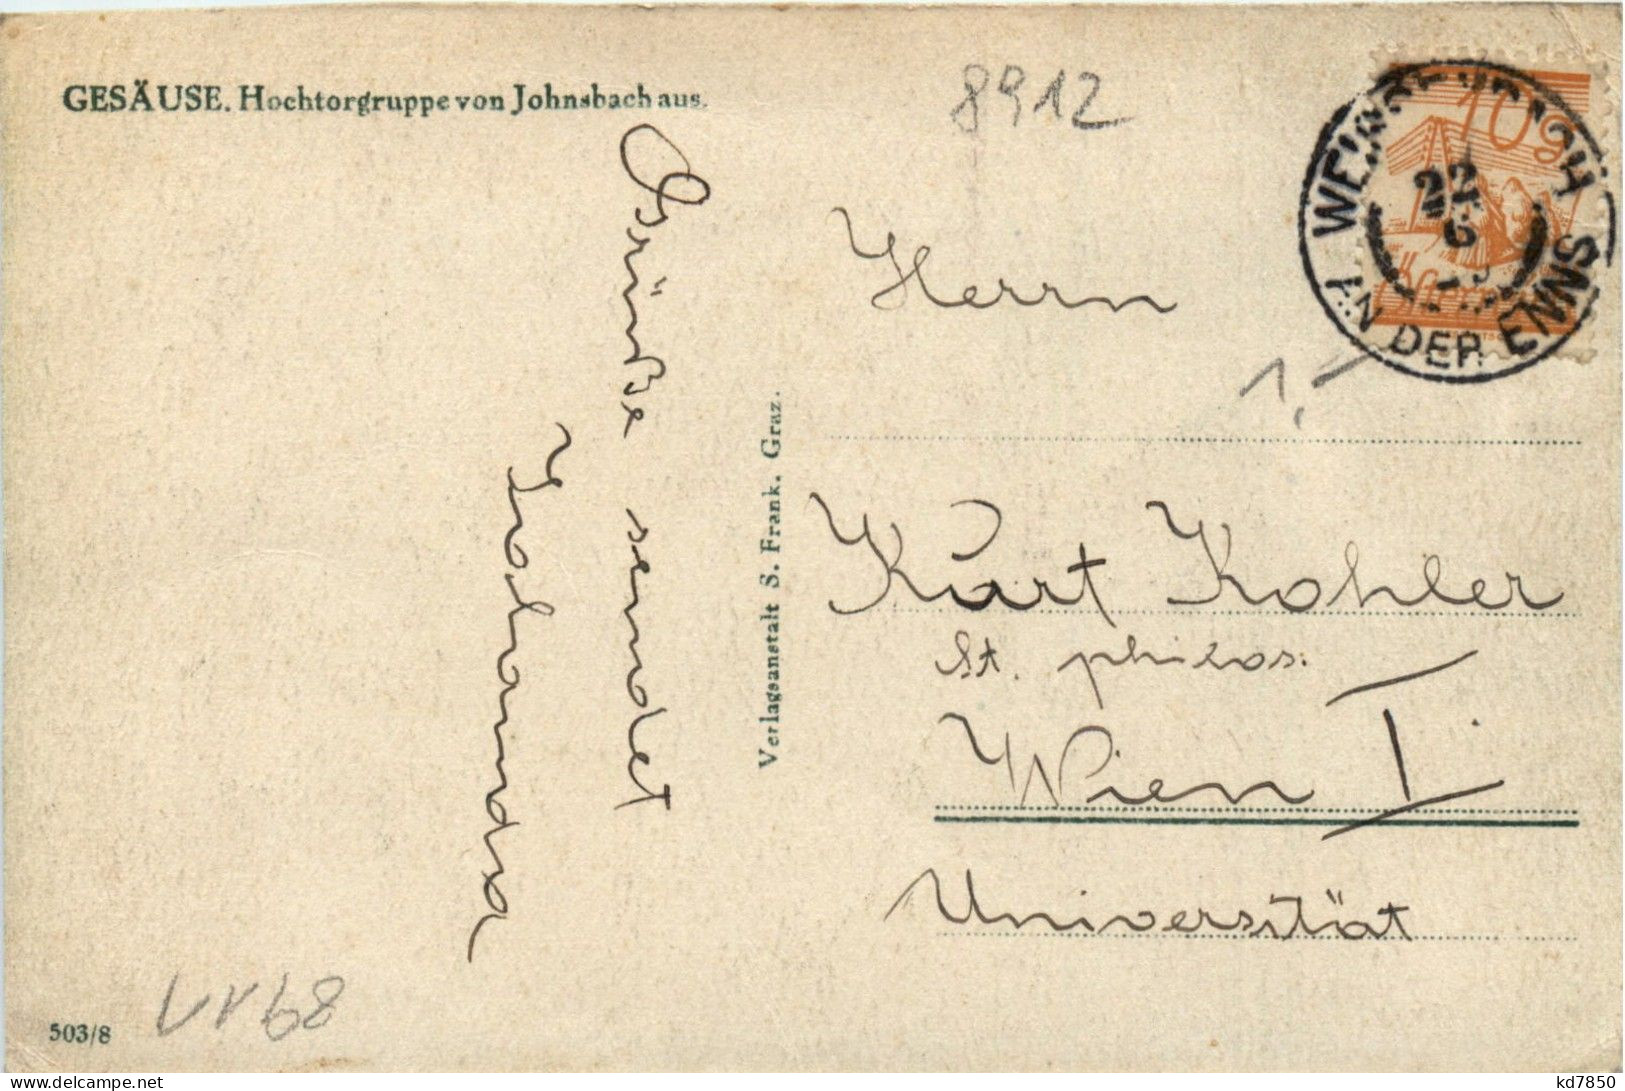 GESÄUSE. Hochtorgruppe von Johnsbach aus.
8912
10 g
22
6
AN DER ENNS
1,-
Grüße sendet
Verlagsanstalt S. Frank, Graz.
Herrn
Kurt Kohler
st. philos.
Wien I.
Universität
503/8
https://www.delcampe.net
kd7850